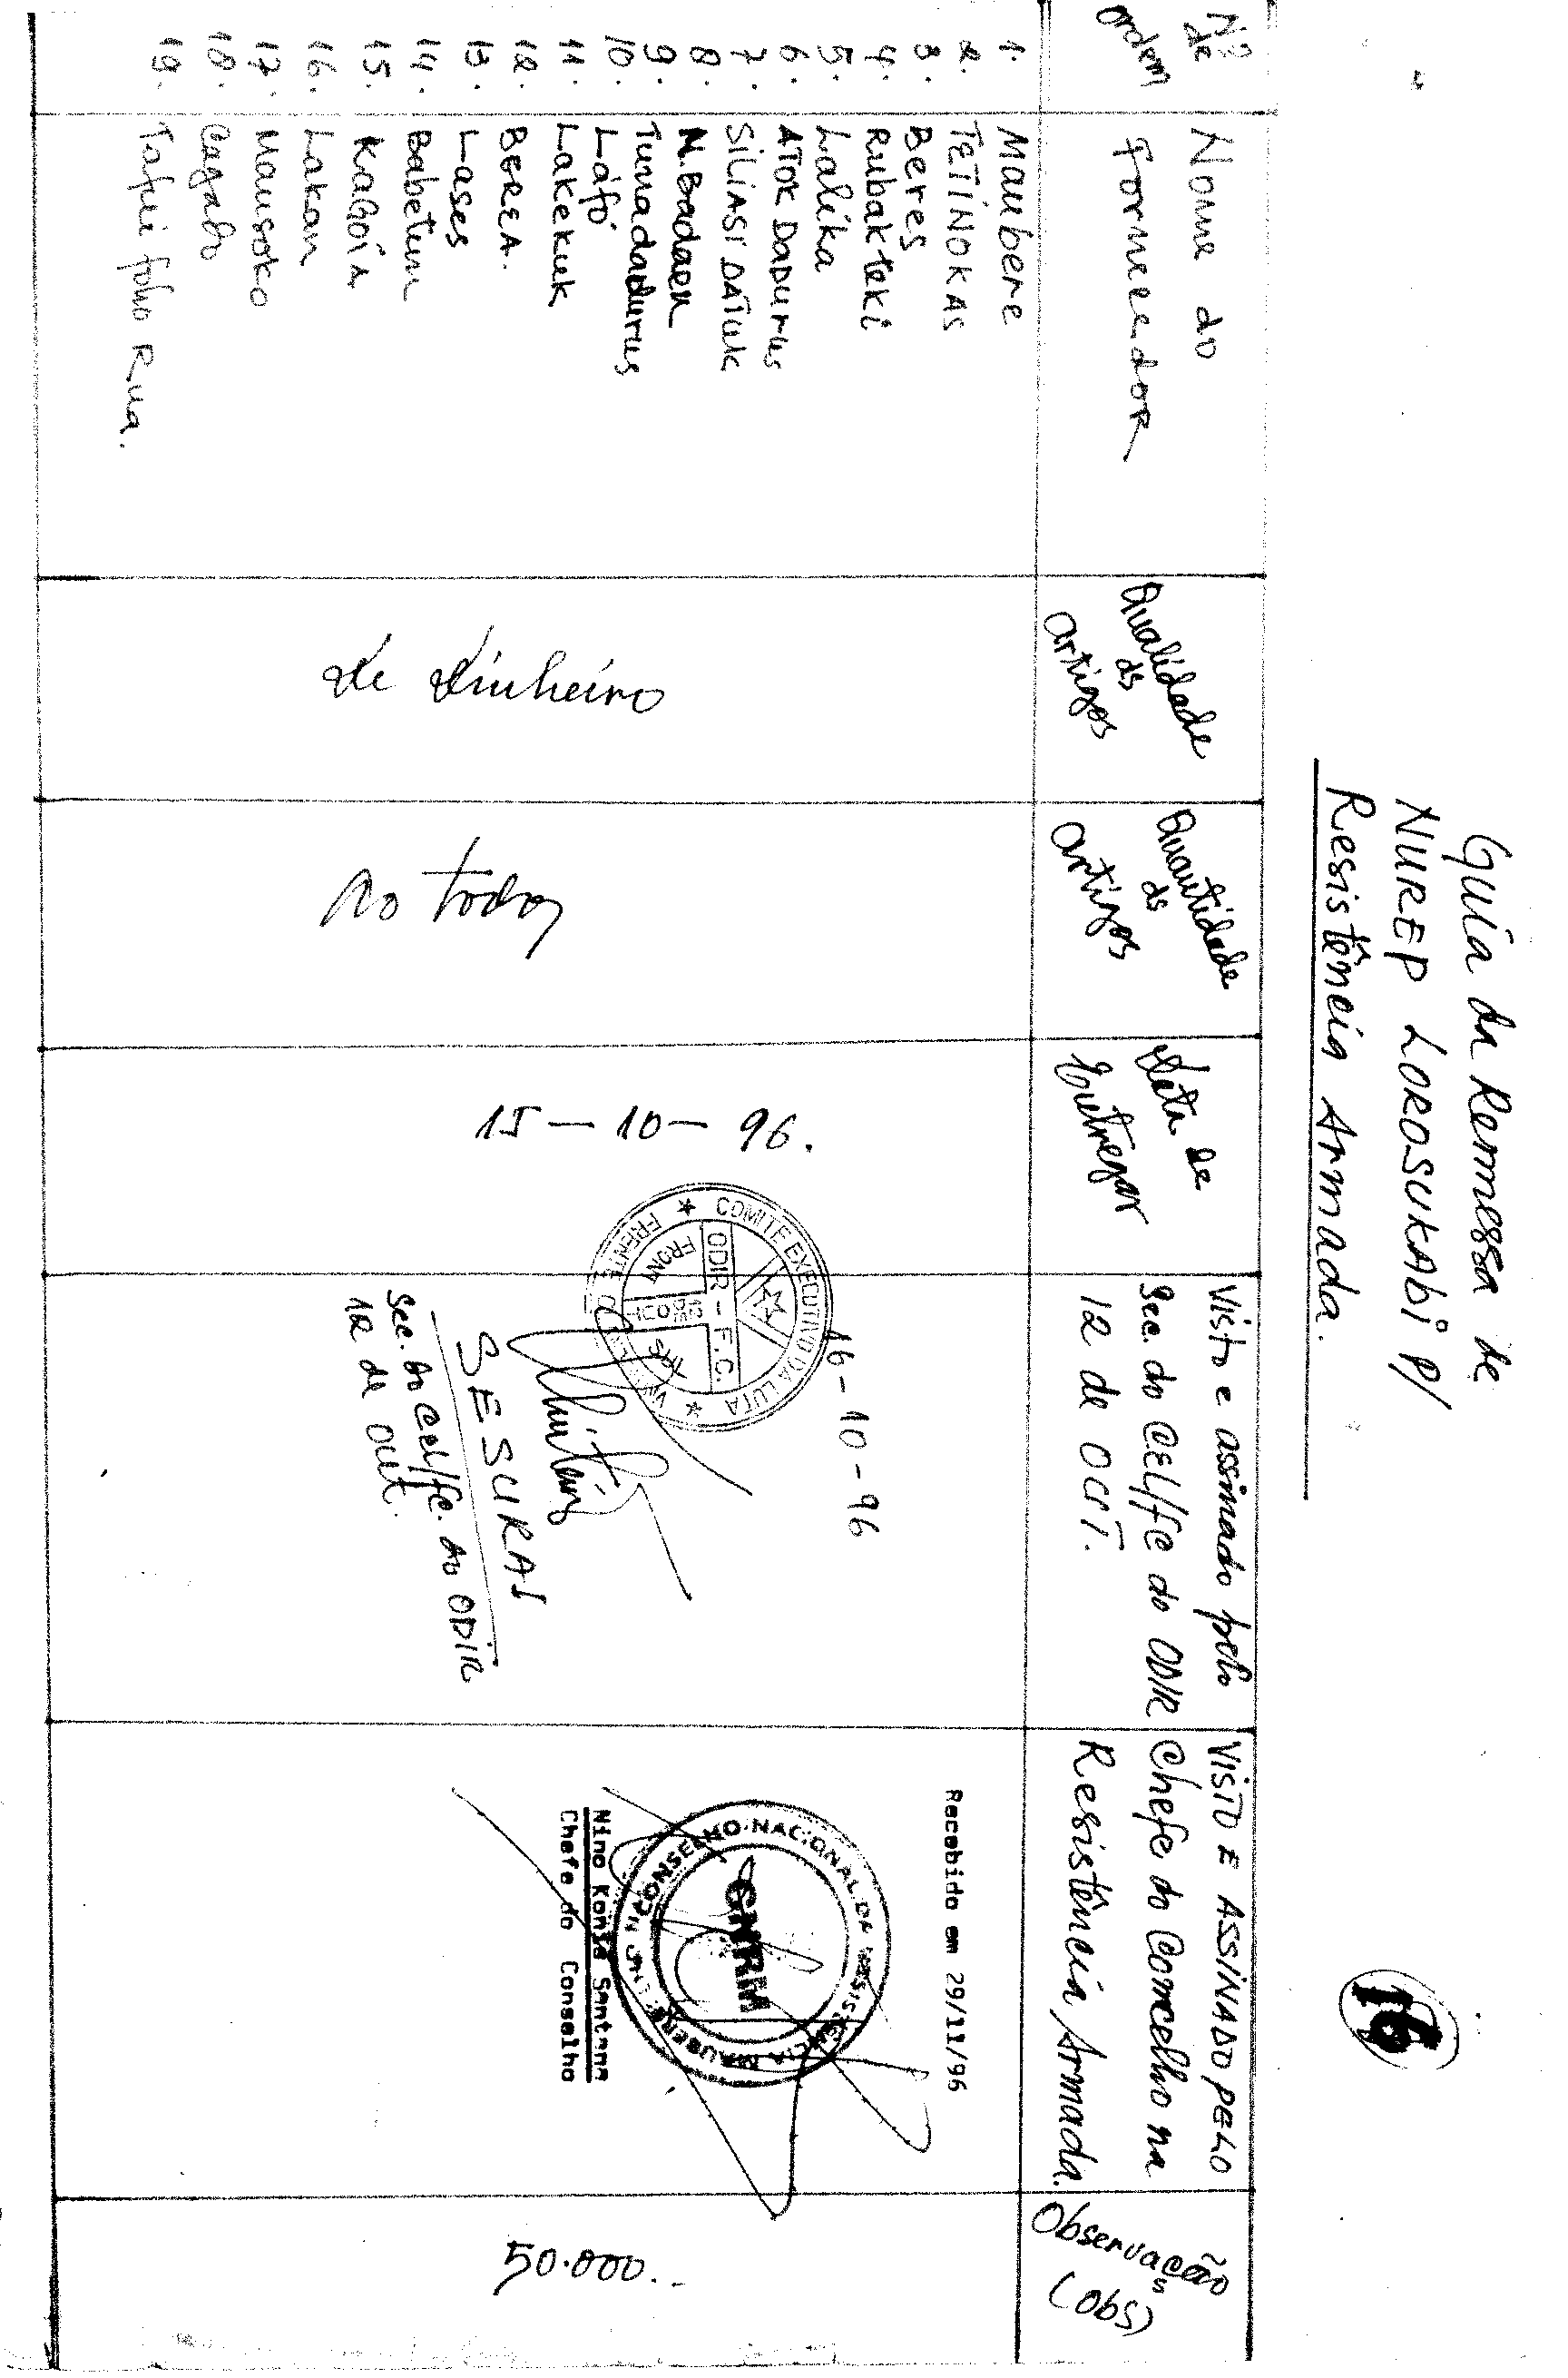 16
Guia da Remessa de
NUREP LOROSUKABI P/
Resistência Armada.
Nº de ordem
Nome do Fornecedor
Qualidade ds artigos
Quantidade ds artigos
Data de Entregar
Visto e assinado pelo
Sec. do CEL/FC do ODIR
12 de OUT.
VISTO E ASSINADO PELO
Chefe do Concelho na
Resistência Armada.
Observação
(obs)
1. Maubere
2. TETINOKAS
3. Beres
4. Rubakteki
5. Lalika
6. ATOK DADURUS
7. SILIASI DATUK
8. N. Badaen
9. Tunadadurus
10. Láfó
11. Lakekuk
12. BEREA.
13. Lases
14. Babetun
15. Kaboin
16. Lakan
17. Mausoko
18. Cagado
19. Tafui foho Rua.
de dinheiro
Ao todos
15-10-96.
16-10-96
COMITE EXECUTIVO DA LUTA
FRENTE
ODIR - F.C.
SESURAI
Sec. do Cel/fc. do ODIR
12 de out.
Recebido em 29/11/96
CONSELHO NACIONAL DA RESISTENCIA MAUBERE
CNRM
Nino Konis Santana
Chefe do Conselho
50.000..